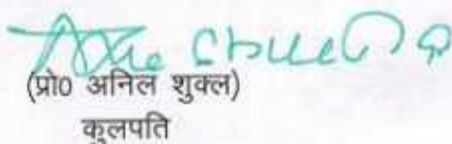 (प्रो0 अनिल शुक्ल)
कुलपति